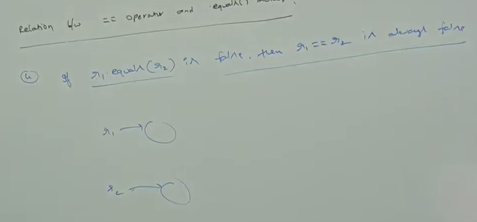 Relation b/w == operator and equals()
④ If r1.equals(r2) is false, then r1 == r2 is always false
r1 →
r2 →